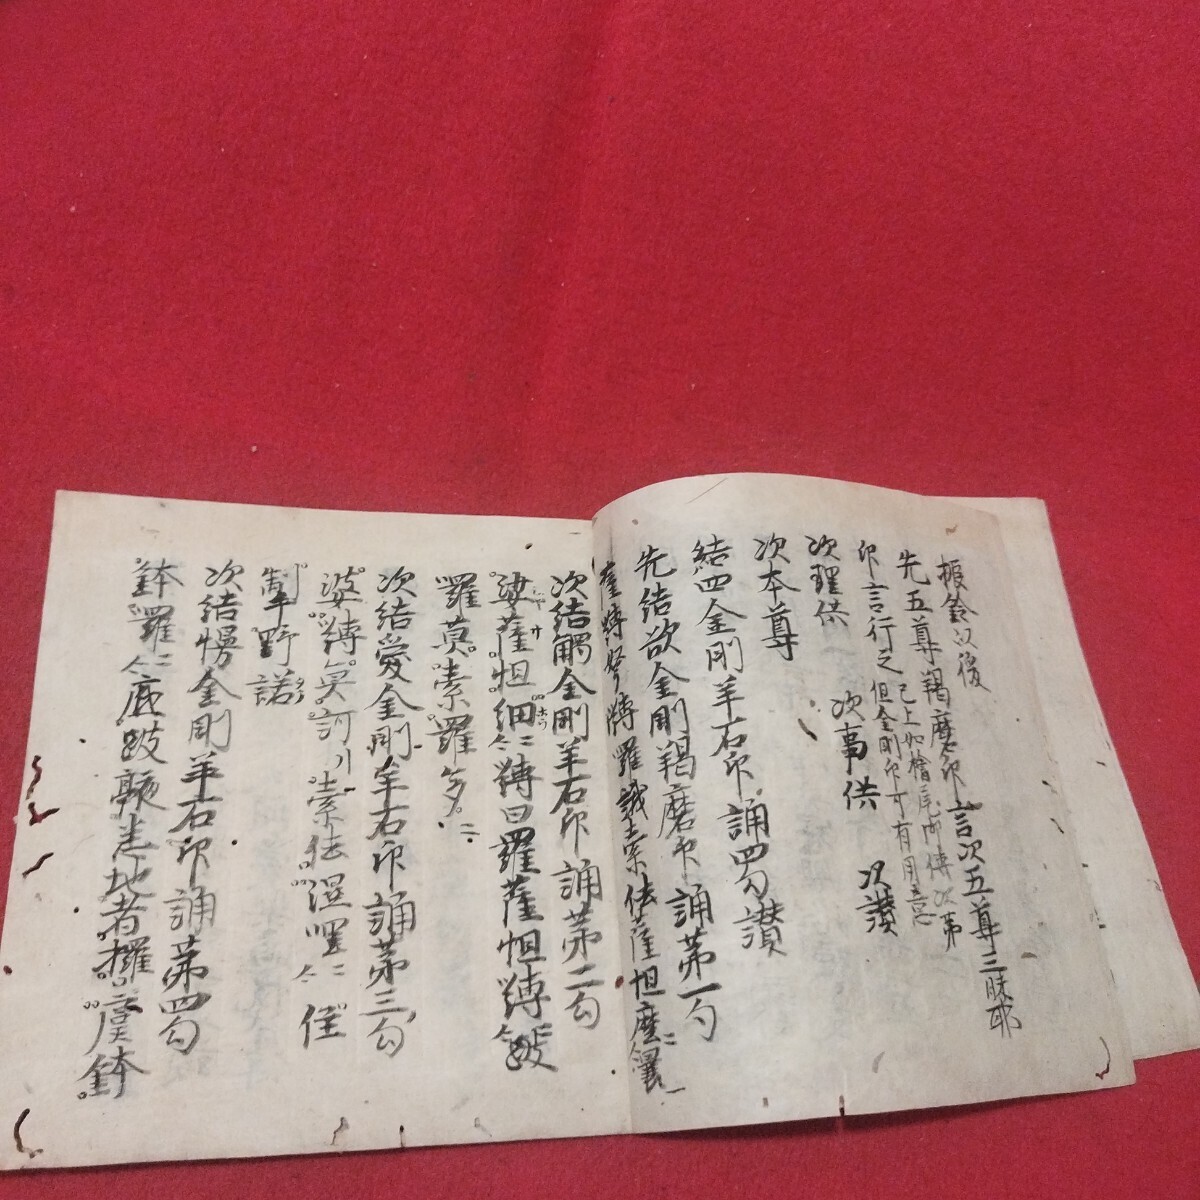 振鈴以後
先五尊羯磨印言次五尊三昧耶
印言行之 已上如檜尾御傳次第 但金剛印可有用意
次理供 次事供 次讃
次本尊
結四金剛羊石印誦四句讃
先結欲金剛羯磨印誦第一句
薩縛 縛羅 素佉薩怛
次結觸金剛羊石印誦第二句
娑薩怛細二合縛曰羅薩怛縛
羅莫素羅多 二
次結愛金剛羊石印誦第三句
娑縛冥訶 素佉涅哩二合住
掣野諾
次結慢金剛羊石印誦第四句
鉢羅二合底跛 悉地者攞虞鉢